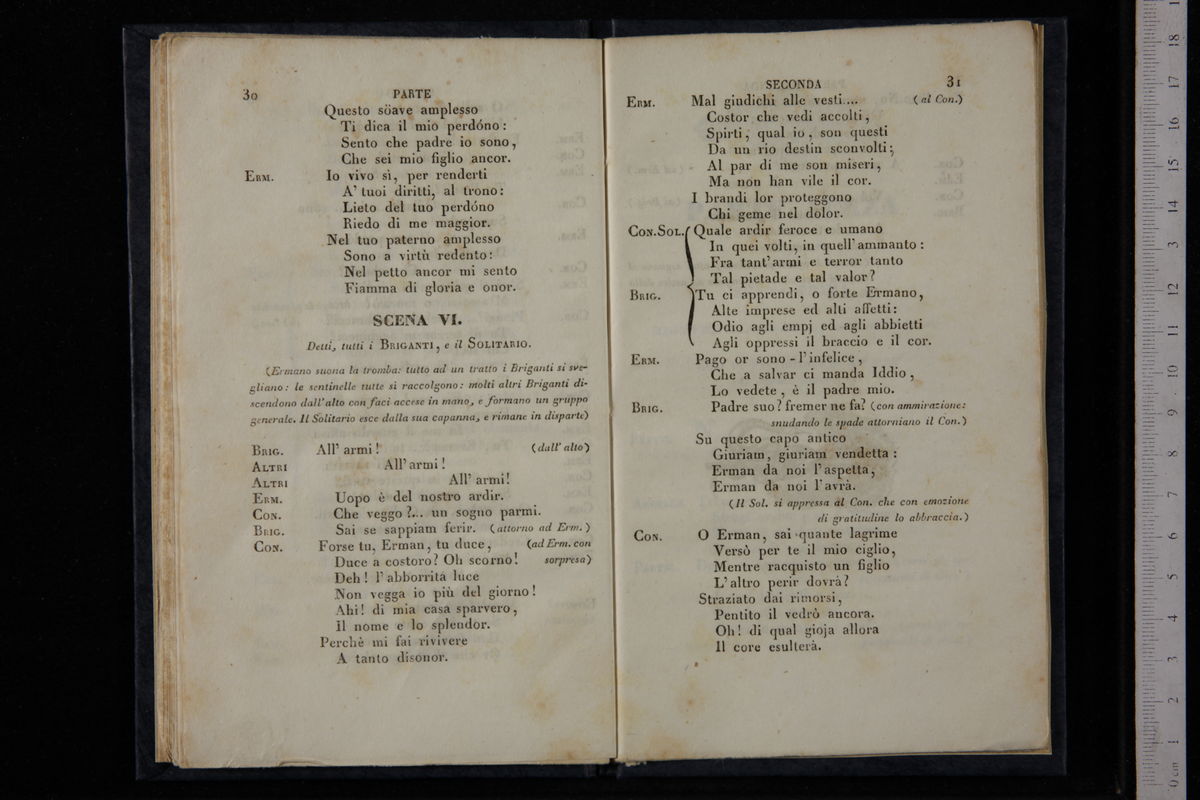 30
PARTE
Questo söave amplesso
Ti dica il mio perdóno:
Sento che padre io sono,
Che sei mio figlio ancor.
ERM. Io vivo sì, per renderti
A' tuoi diritti, al trono:
Lieto del tuo perdóno
Riedo di me maggior.
Nel tuo paterno amplesso
Sono a virtù redento:
Nel petto ancor mi sento
Fiamma di gloria e onor.
SCENA VI.
Detti, tutti i BRIGANTI, e il SOLITARIO.
(Ermano suona la tromba: tutto ad un tratto i Briganti si sve-
gliano: le sentinelle tutte si raccolgono: molti altri Briganti di-
scendono dall'alto con faci accese in mano, e formano un gruppo
generale. Il Solitario esce dalla sua capanna, e rimane in disparte)
BRIG. All' armi! (dall' alto)
ALTRI All' armi!
ALTRI All' armi!
ERM. Uopo è del nostro ardir.
CON. Che veggo?... un sogno parmi.
BRIG. Sai se sappiam ferir. (attorno ad Erm.)
CON. Forse tu, Erman, tu duce, (ad Erm. con
Duce a costoro? Oh scorno! sorpresa)
Deh! l'abborrita luce
Non vegga io più del giorno!
Ahi! di mia casa sparvero,
Il nome e lo splendor.
Perchè mi fai rivivere
A tanto disonor.
SECONDA
31
ERM. Mal giudichi alle vesti.... (al Con.)
Costor che vedi accolti,
Spirti, qual io, son questi
Da un rio destin sconvolti;
Al par di me son miseri,
Ma non han vile il cor.
I brandi lor proteggono
Chi geme nel dolor.
CON. SOL. Quale ardir feroce e umano
In quei volti, in quell'ammanto:
Fra tant'armi e terror tanto
Tal pietade e tal valor?
BRIG. Tu ci apprendi, o forte Ermano,
Alte imprese ed alti affetti:
Odio agli empj ed agli abbietti
Agli oppressi il braccio e il cor.
ERM. Pago or sono - l'infelice,
Che a salvar ci manda Iddio,
Lo vedete, è il padre mio.
BRIG. Padre suo? fremer ne fa? (con ammirazione:
snudando le spade attorniano il Con.)
Su questo capo antico
Giuriam, giuriam vendetta:
Erman da noi l'aspetta,
Erman da noi l'avrà.
(Il Sol. si appressa al Con. che con emozione
di gratitudine lo abbraccia.)
CON. O Erman, sai quante lagrime
Versò per te il mio ciglio,
Mentre racquisto un figlio
L'altro perir dovrà?
Straziato dai rimorsi,
Pentito il vedrò ancora.
Oh! di qual gioja allora
Il core esulterà.
0 cm 1 2 3 4 5 6 7 8 9 10 11 12 13 14 15 16 17 18